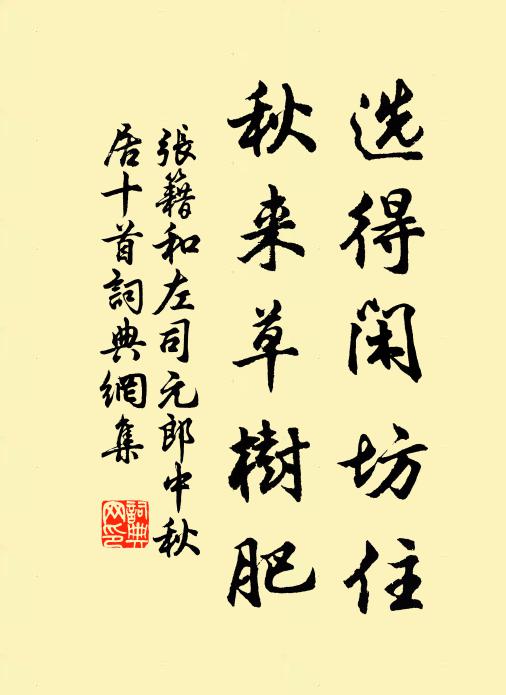 选得闲坊住
秋来草樹肥
張籍和左司元郎中秋
居十首詞典網集
詞典
网印